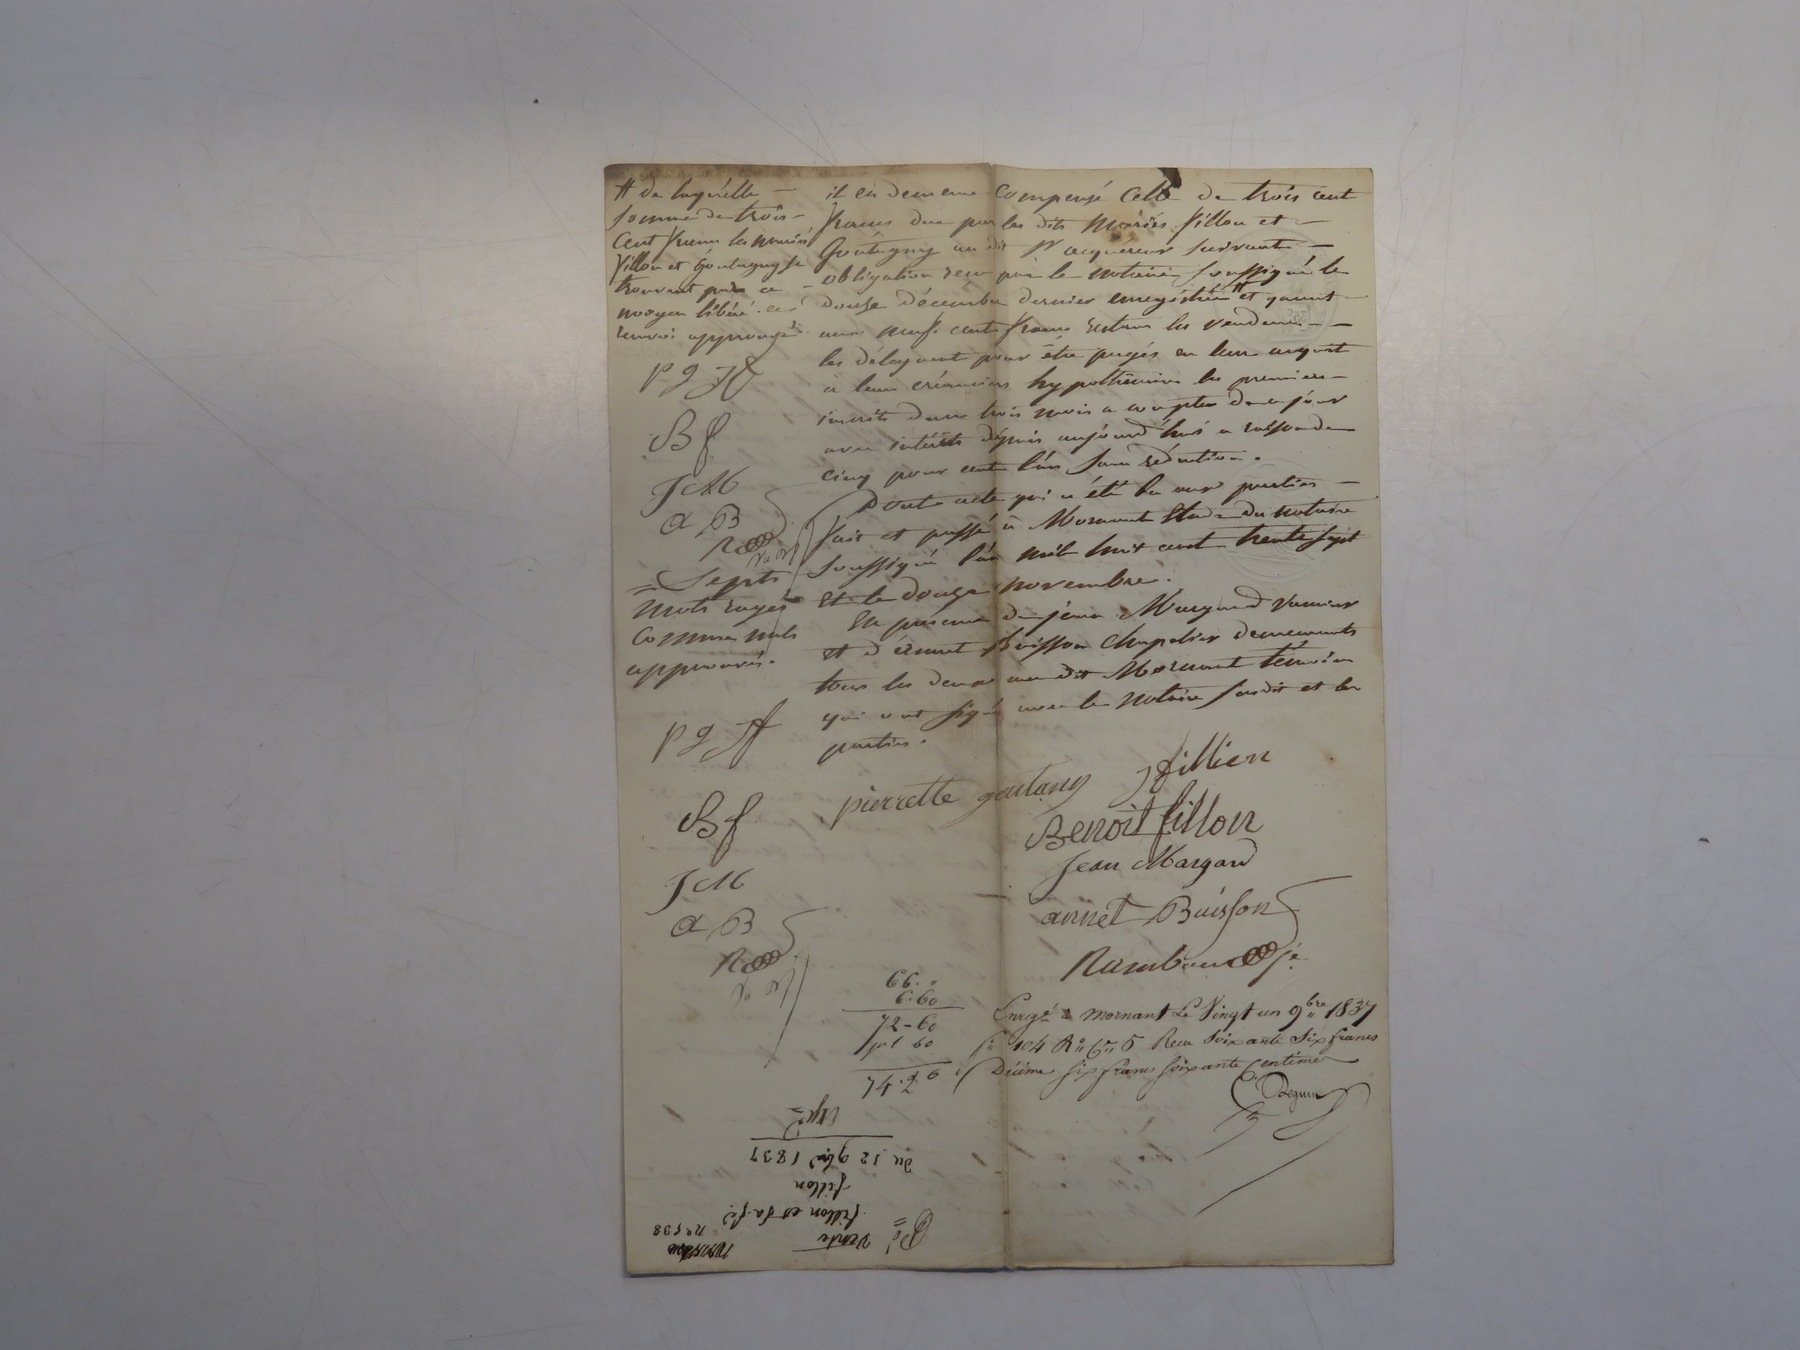 il en demeure compensé celle de trois cent
francs due par les dits mariés fillon et
Goutagny au dit Sr acquéreur suivant
obligation reçu par le notaire soussigné le
douze décembre dernier enregistrée # et quant
aux neuf cent francs restans les vendeurs
les délèguent pour être payés en leur acquit
a leurs créanciers hypothécaires les premiers
inscrits dans trois mois a compter de ce jour
avec intérêts depuis aujourd'hui a raison de
cinq pour cent l'an sans réduction.
Dont acte qui a été lu aux parties
fait et passé à Mornant Etude du notaire
soussigné l'an mil huit cent trente sept
Et le douze novembre.
En présence de jean Margard
et d'annet Buisson chapelier demeurants
tous les deux au dit Mornant témoins
qui ont signé avec le notaire susdit et les
parties.
# de laquelle
somme de trois
cent francs les mariés
fillon et Goutagny se
trouvent par ce
moyen libéré.
renvoi approuvé
p g Jf
Bf
JM
a B
R
= Septs
mots rayés
comme nuls
approuvés.
p g Jf
Bf
JM
a B
R
pierrette goutany Jfillion
Benoit fillon
Jean Margard
annet Buisson
Rambau je
66. "
6.60
72-60
1 60
74.20
Enregé à mornant Le Vingt un 9bre 1837
fo 104 Ro Ces 5 Reçu Soixante Six francs
Décime six francs soixante Centimes
Po
Vente
fillon et sa fe
fillon
du 12 9bre 1837
no 538